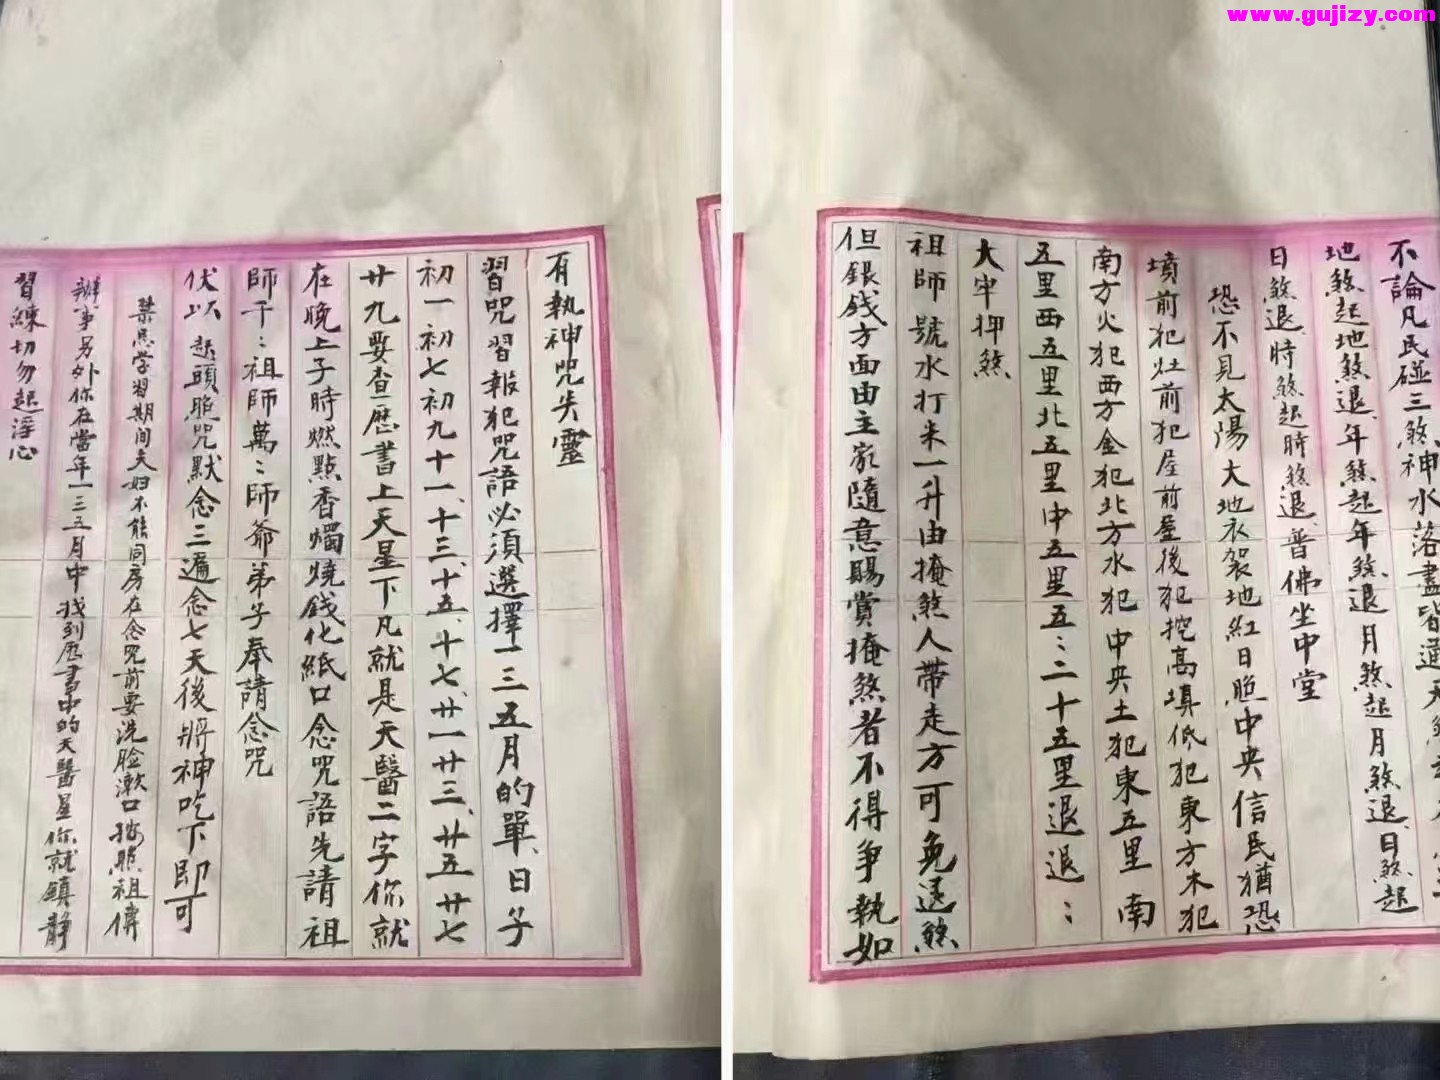 www.gujizy.com
不論凡民碰三煞神水落盡皆通天
地煞起地煞退、年煞起年煞退月煞起月煞退、日煞起
日煞退、時煞起時煞退、普佛坐中堂
恐不見太陽大地衣袈地紅日照中央信民猶恐
墳前犯灶前犯屋前屋後犯挖高填低犯東方木犯
南方火犯西方金犯北方水犯中央土犯東五里南
五里西五里北五里中五里五:二十五里退退:
大牢押煞
祖師號水打米一升由掩煞人带走方可免退煞
但銀錢方面由主家隨意賜賞掩煞者不得争執如
有執神咒失靈
習咒習報犯咒語必須選擇一三五月的單、日子
初一初七初九十一、十三、十五、十七、廿一廿三、廿五廿七
廿九要查曆書上天星下凡就是天醫二字你就
在晚上子時燃點香燭燒錢化紙口念咒語先請祖
師千:祖師萬:師爺弟子奉請念咒
伏以 起頭照咒默念三遍念七天後將神吃下即可
禁忌学習期间夫妇不能同房在念咒前要洗脸漱口按照祖傳
辦事另外你在當年一三五月中找到历書中的天醫星你就鎮静
習練切勿起浮心